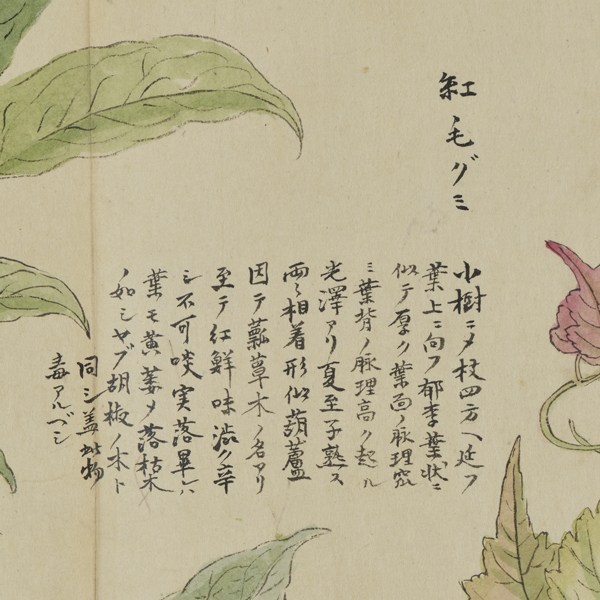 紅毛グミ
小樹ニメ枝四方ヘ延フ
葉上ニ向フ郁李葉状ニ
似テ厚ク葉面ノ脉理窊
ミ葉背ノ脉理高ク起ル
光澤アリ夏至子熟ス
両々相着形似葫蘆
因テ瓢簟木ノ名アリ
至テ紅鮮味澁ク辛
シ不可啖実落畢ハ
葉モ黄萎メ落枯木
ノ如シヤブ胡椒ノ木ト
同シ盖此物
毒アルベシ